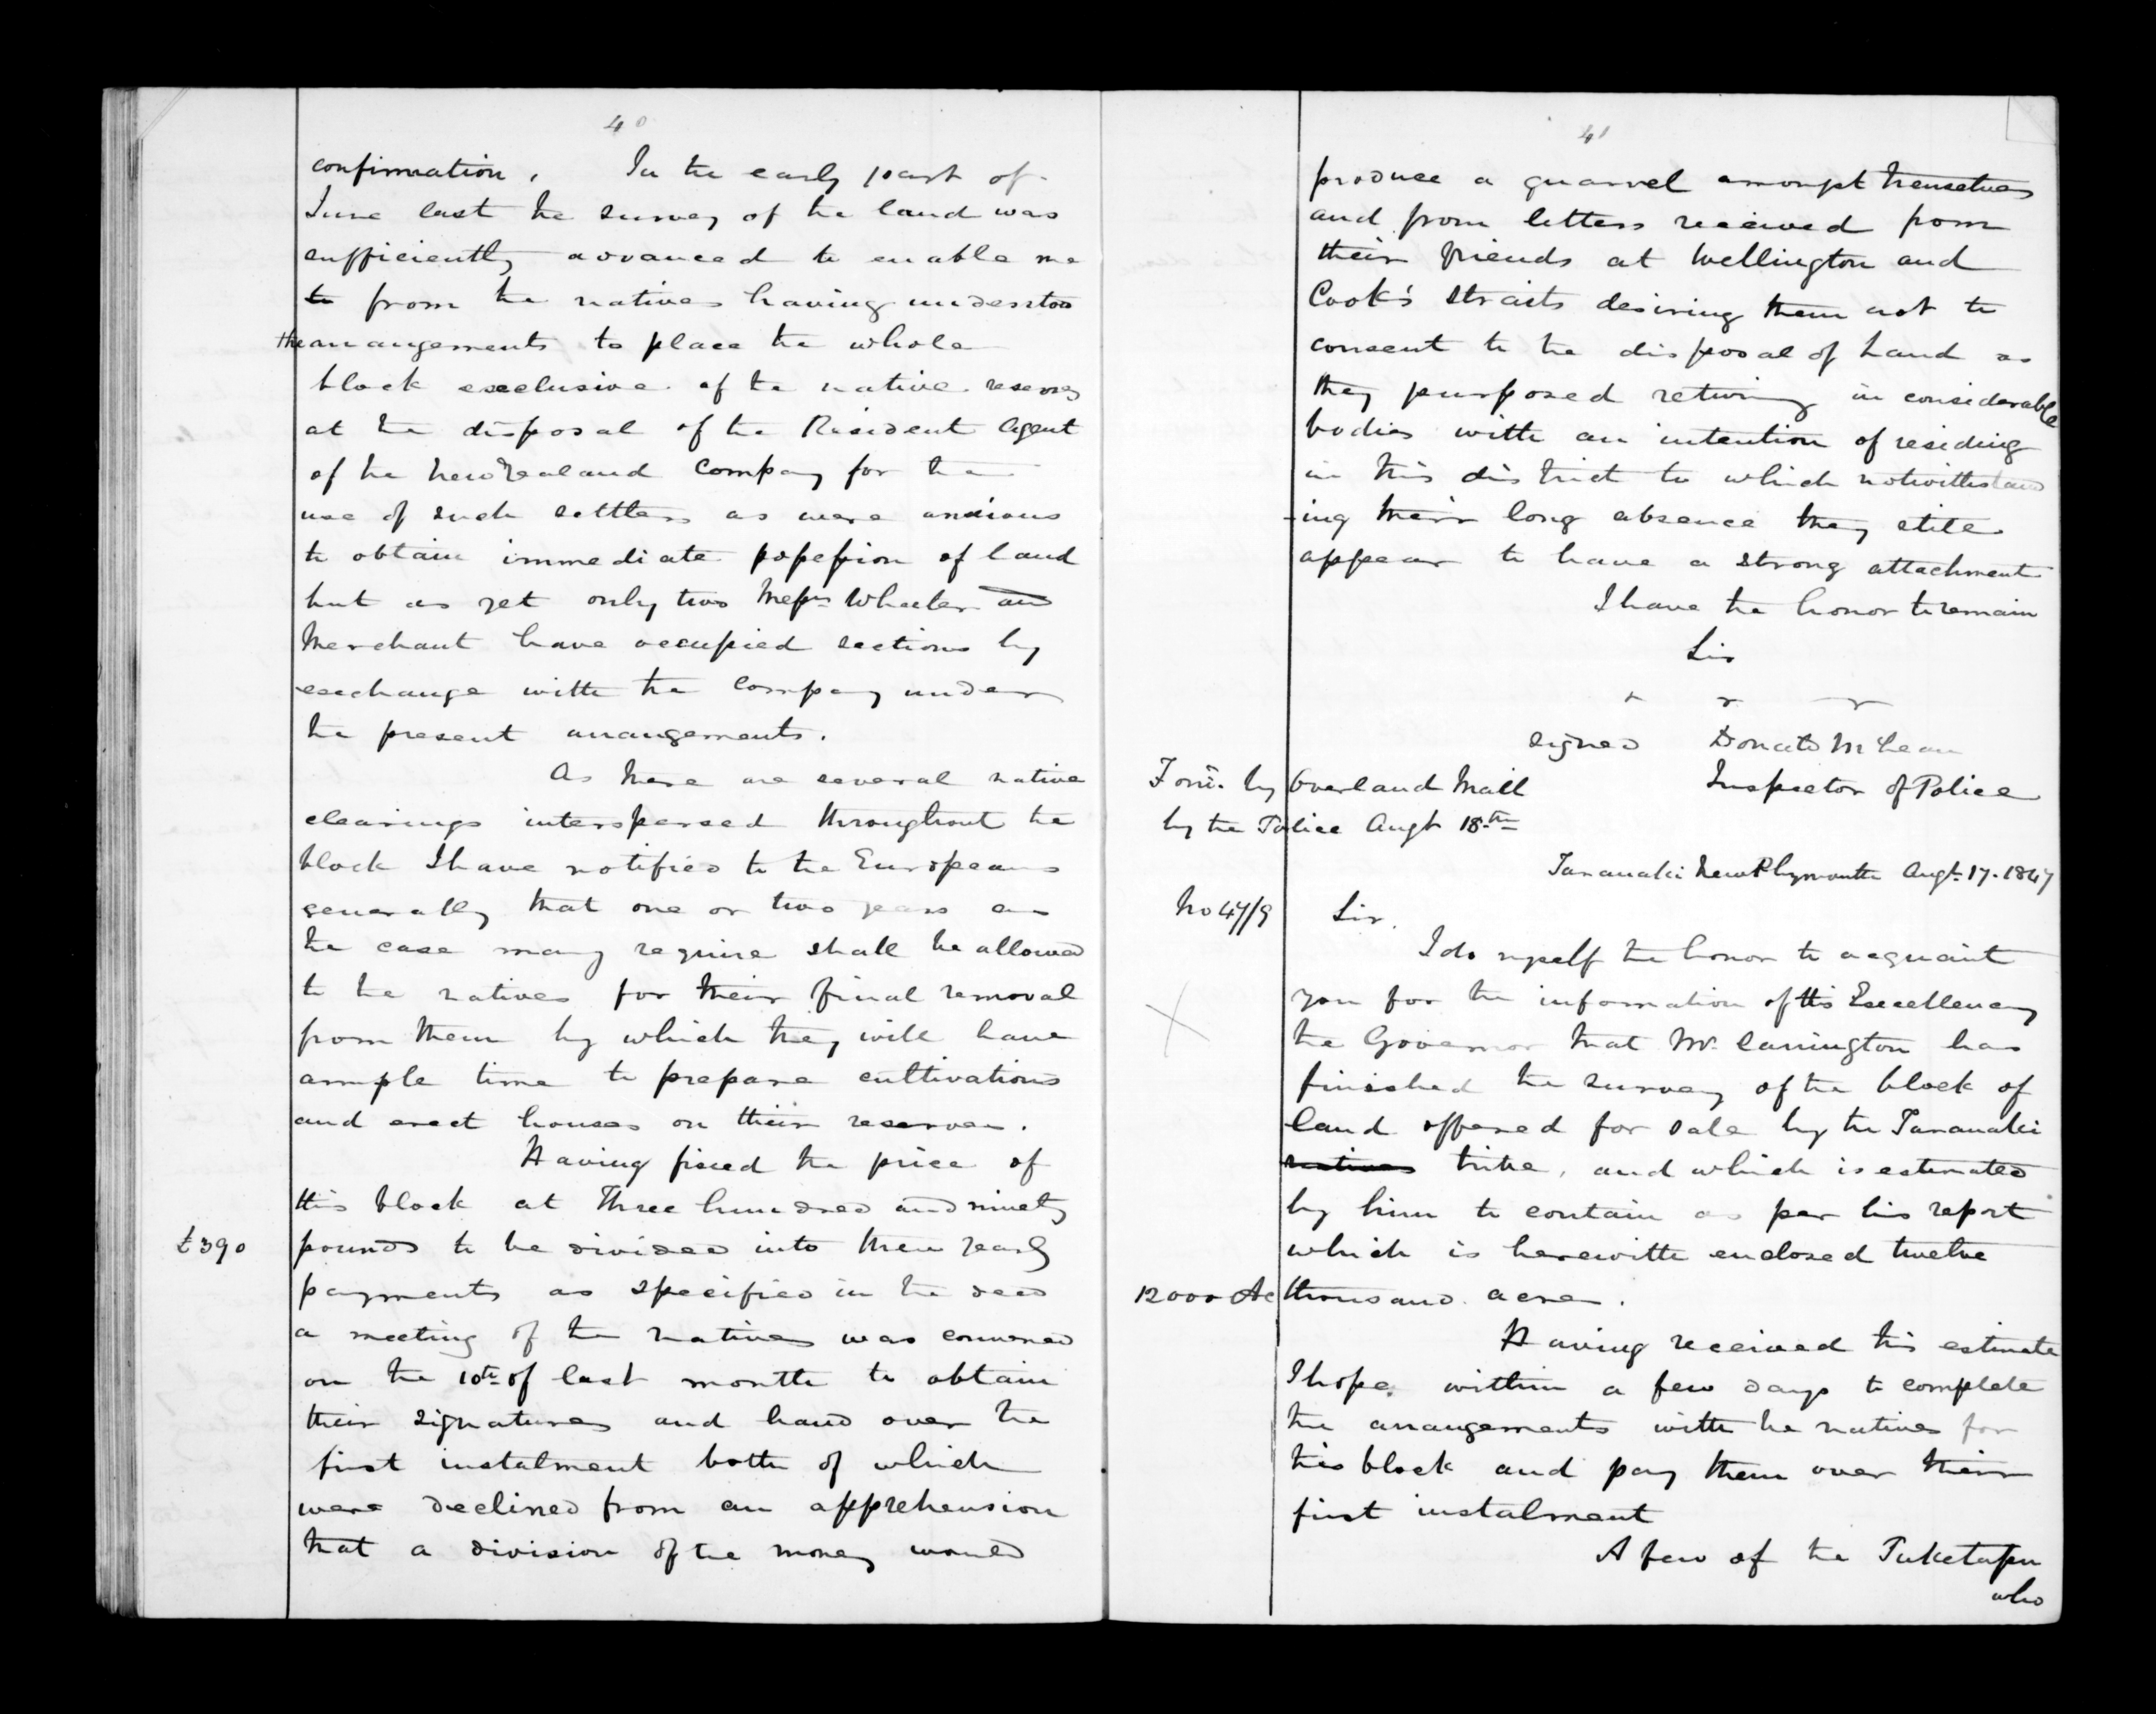 40
confirmation. In the early part of
June last the survey of the land was
sufficiently advanced to enable me
to from the natives having understood
the arrangements to place the whole
block exclusive of the native reserves
at the disposal of the Resident Agent
of the New Zealand Company for the
use of such settlers as were anxious
to obtain immediate possession of land
but as yet only two Messrs Wheeler and
Merchant have occupied sections by
exchange with the Company under
the present arrangements.
As there are several native
clearings interspersed throughout the
block I have notified to the Europeans
generally that one or two years as
the case may require shall be allowed
to the natives for their final removal
from them by which they will have
ample time to prepare cultivations
and erect houses on their reserves.
Having fixed the price of
this block at Three hundred and ninety
£390 pounds to be divided into three yearly
payments as specified in the deed
a meeting of the natives was convened
on the 10th of last month to obtain
their signatures and hand over the
first instalment both of which
were declined from an apprehension
that a division of the money would
41
produce a quarrel amongst themselves
and from letters received from
their friends at Wellington and
Cook's Straits desiring them not to
consent to the disposal of land as
they purposed returning in considerable
bodies with an intention of residing
in this district to which notwithstand
-ing their long absence they still
appear to have a strong attachment
I have the honor to remain
Sir
signed Donald McLean
Inspector of Police
Forwd. by Overland Mail
by the Police Augt 18th
Taranaki New Plymouth Augt. 17. 1847
No 47/9 Sir.
I do myself the honor to acquaint
you for the information of His Excellency
the Governor that Mr. Carrington has
finished the survey of the block of
land offered for sale by the Taranaki
natives tribe, and which is estimated
by him to contain as per his report
which is herewith enclosed twelve
12000 Ac thousand acres.
Having received this estimate
I hope within a few days to complete
the arrangements with the natives for
this block and pay them over their
first instalment
A few of the Puketapu
who